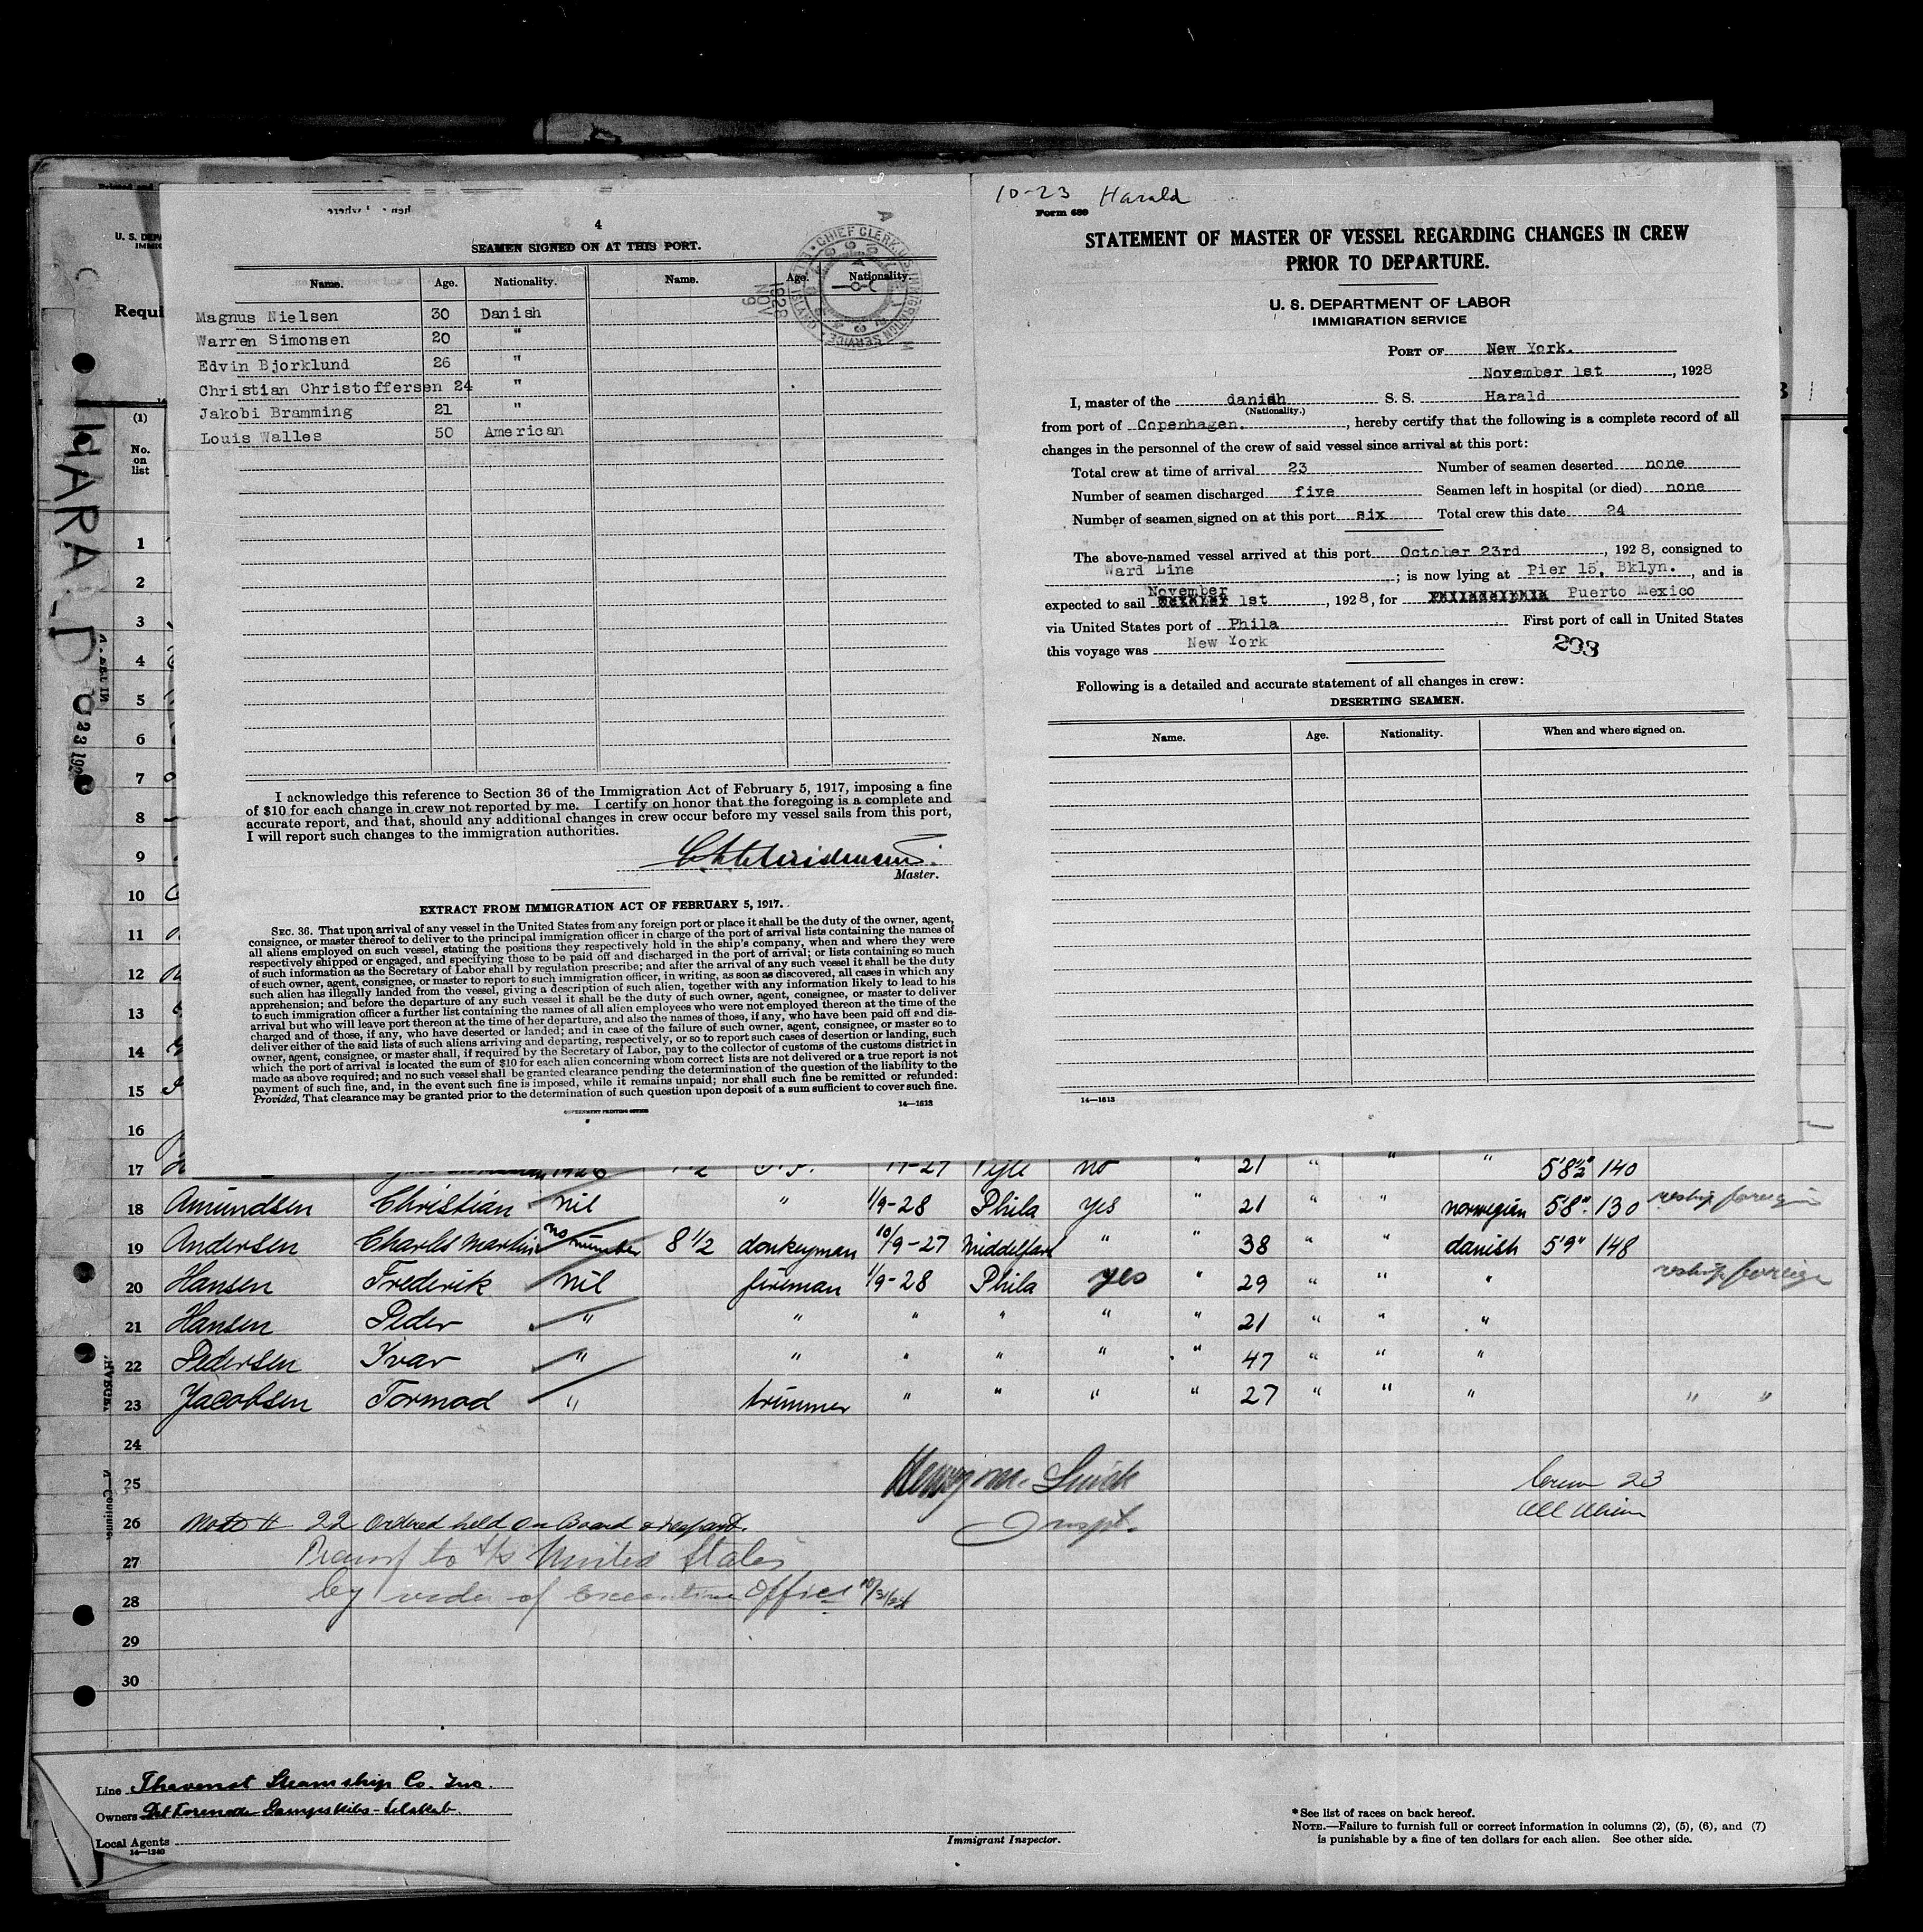 4
SEAMEN SIGNED ON AT THIS PORT.
Name. Age. Nationality. Name. Age. Nationality.
Magnus Nielsen 30 Danish
Warren Simonsen 20 "
Edvin Bjorklund 26 "
Christian Christoffersen 24 "
Jakobi Bramming 21 "
Louis Walles 50 American
1928 NOV 9
I acknowledge this reference to Section 36 of the Immigration Act of February 5, 1917, imposing a fine
of $10 for each change in crew not reported by me. I certify on honor that the foregoing is a complete and
accurate report, and that, should any additional changes in crew occur before my vessel sails from this port,
I will report such changes to the immigration authorities.
Master.
EXTRACT FROM IMMIGRATION ACT OF FEBRUARY 5, 1917.
SEC. 36. That upon arrival of any vessel in the United States from any foreign port or place it shall be the duty of the owner, agent,
consignee, or master thereof to deliver to the principal immigration officer in charge of the port of arrival lists containing the names of
all aliens employed on such vessel, stating the positions they respectively hold in the ship's company, when and where they were
respectively shipped or engaged, and specifying those to be paid off and discharged in the port of arrival; or lists containing so much
of such information as the Secretary of Labor shall by regulation prescribe; and after the arrival of any such vessel it shall be the duty
of such owner, agent, consignee, or master to report to such immigration officer, in writing, as soon as discovered, all cases in which any
such alien has illegally landed from the vessel, giving a description of such alien, together with any information likely to lead to his
apprehension; and before the departure of any such vessel it shall be the duty of such owner, agent, consignee, or master to deliver
to such immigration officer a further list containing the names of all alien employees who were not employed thereon at the time of the
arrival but who will leave port thereon at the time of her departure, and also the names of those, if any, who have been paid off and dis-
charged and of those, if any, who have deserted or landed; and in case of the failure of such owner, agent, consignee, or master so to
deliver either of the said lists of such aliens arriving and departing, respectively, or so to report such cases of desertion or landing, such
owner, agent, consignee, or master shall, if required by the Secretary of Labor, pay to the collector of customs of the customs district in
which the port of arrival is located the sum of $10 for each alien concerning whom correct lists are not delivered or a true report is not
made as above required; and no such vessel shall be granted clearance pending the determination of the question of the liability to the
payment of such fine, and, in the event such fine is imposed, while it remains unpaid; nor shall such fine be remitted or refunded:
Provided, That clearance may be granted prior to the determination of such question upon deposit of a sum sufficient to cover such fine.
GOVERNMENT PRINTING OFFICE
14—1613
10-23 Harald
Form 689
STATEMENT OF MASTER OF VESSEL REGARDING CHANGES IN CREW
PRIOR TO DEPARTURE.
U. S. DEPARTMENT OF LABOR
IMMIGRATION SERVICE
PORT OF New York.
November 1st, 1928
I, master of the danish S. S. Harald
(Nationality.)
from port of Copenhagen., hereby certify that the following is a complete record of all
changes in the personnel of the crew of said vessel since arrival at this port:
Total crew at time of arrival 23 Number of seamen deserted none
Number of seamen discharged five Seamen left in hospital (or died) none
Number of seamen signed on at this port six Total crew this date 24
The above-named vessel arrived at this port October 23rd, 1928, consigned to
Ward Line; is now lying at Pier 15, Bklyn., and is
expected to sail November 1st, 1928, for Puerto Mexico
via United States port of Phila First port of call in United States
this voyage was New York
203
Following is a detailed and accurate statement of all changes in crew:
DESERTING SEAMEN.
Name. Age. Nationality. When and where signed on.
14—1613
HARALD
(1)
No. on list
1
2
3
4
5
6
7
8
9
10
11
12
13
14
15
16
17 no " 21 " " " 5'8½" 140
18 Amundsen Christian nil " 1/9-28 Phila yes " 21 " " norwegian 5'8" 130 reship foreign
19 Andersen Charles Martin no number 8 1/2 donkeyman 10/9-27 Middelfart " " 38 " " danish 5'9" 148
20 Hansen Frederik nil fireman 1/9-28 Phila yes " 29 " " " reship foreign
21 Hansen Peder " " " " " " 21 " " "
22 Pedersen Ivar " " " " " " 47 " " "
23 Jacobsen Tormod " trimmer " " " " 27 " " " " "
24
25 Crew 23
26 Note # 22 ordered held on Board & deport. Inspt. All Aliens
27 Transf to s/s United States
28 by order of Executive Office 10/31/28
29
30
Line Thavenot Steamship Co. Inc.
Owners Det Forenede Dampskibs-Selskab
Local Agents
14—1240
Immigrant Inspector.
* See list of races on back hereof.
NOTE.—Failure to furnish full or correct information in columns (2), (5), (6), and (7)
is punishable by a fine of ten dollars for each alien. See other side.